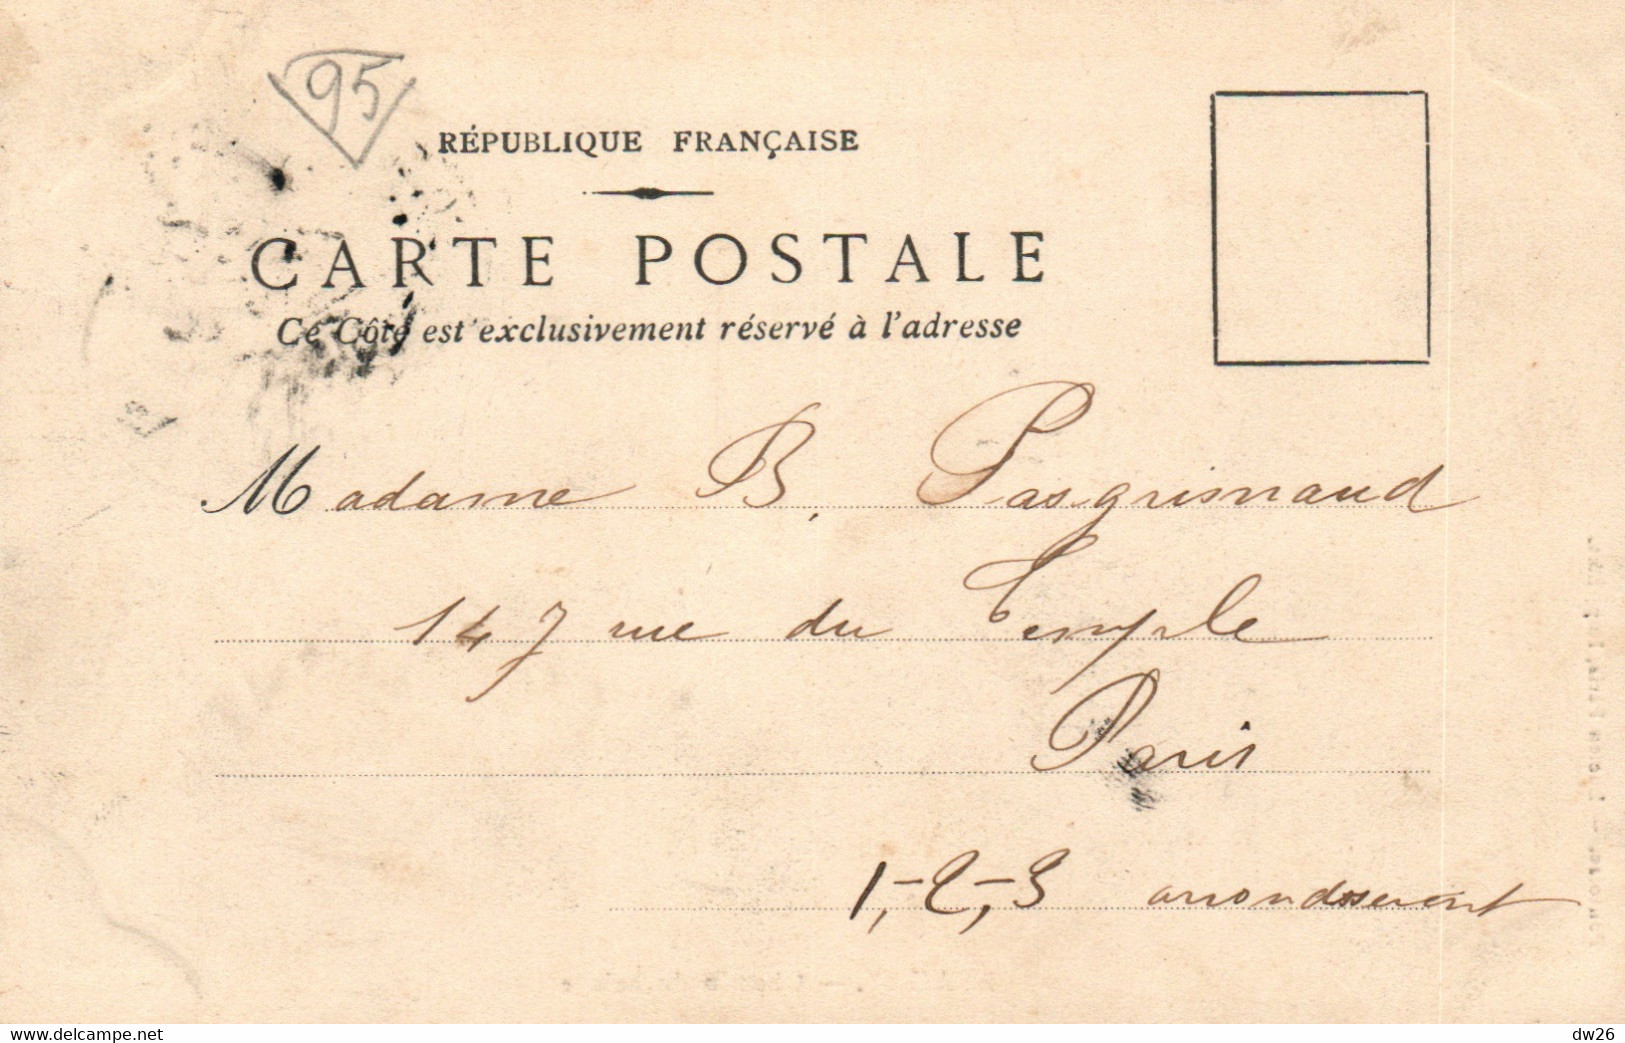 95
RÉPUBLIQUE FRANÇAISE
CARTE POSTALE
Ce Côté est exclusivement réservé à l'adresse
Madame B. Pasgrimaud
147 rue du Temple
Paris
1,-2,-3 arrondissement
delcampe.net
dw26